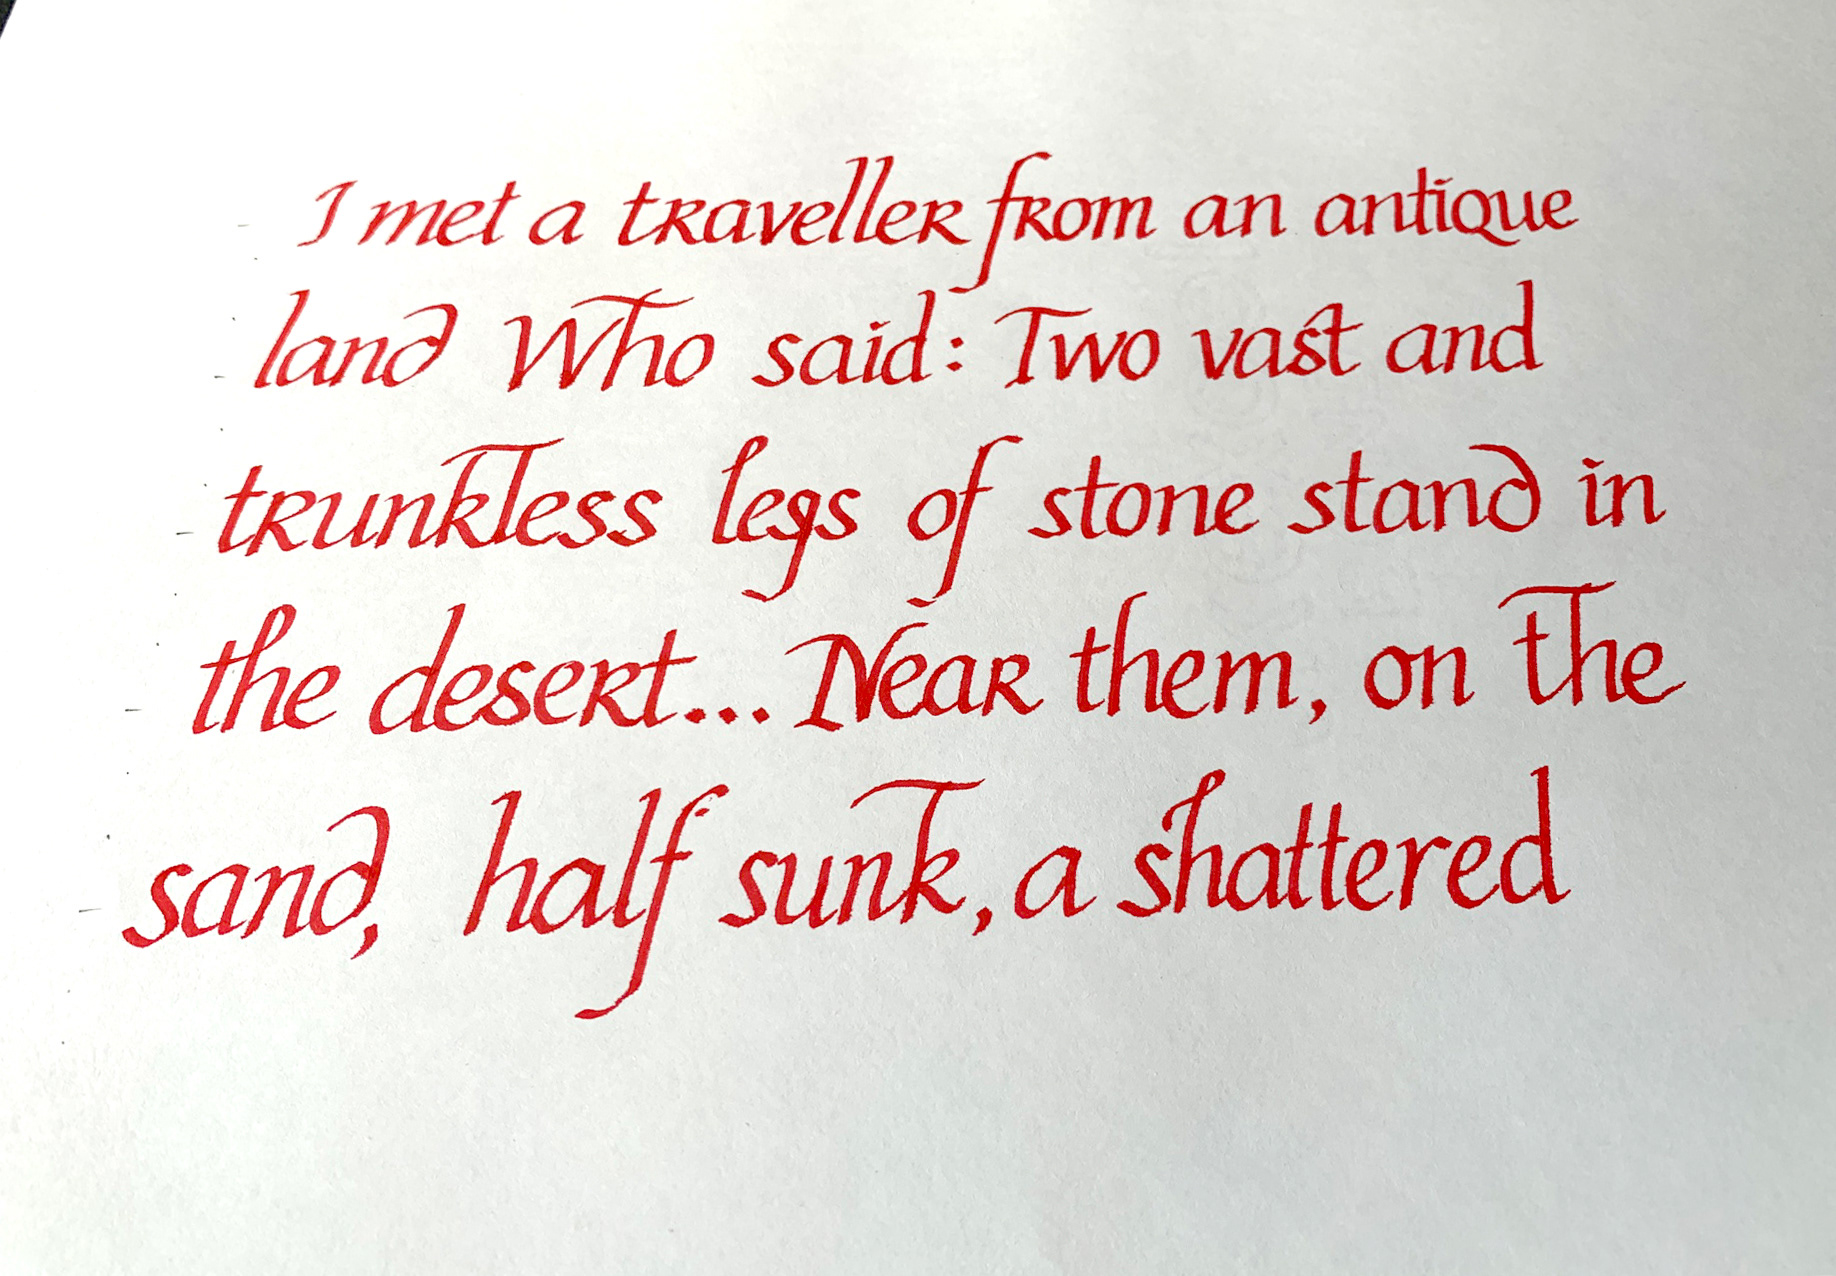 I met a traveller from an antique
land Who said: Two vast and
trunkless legs of stone stand in
the desert... Near them, on the
sand, half sunk, a shattered